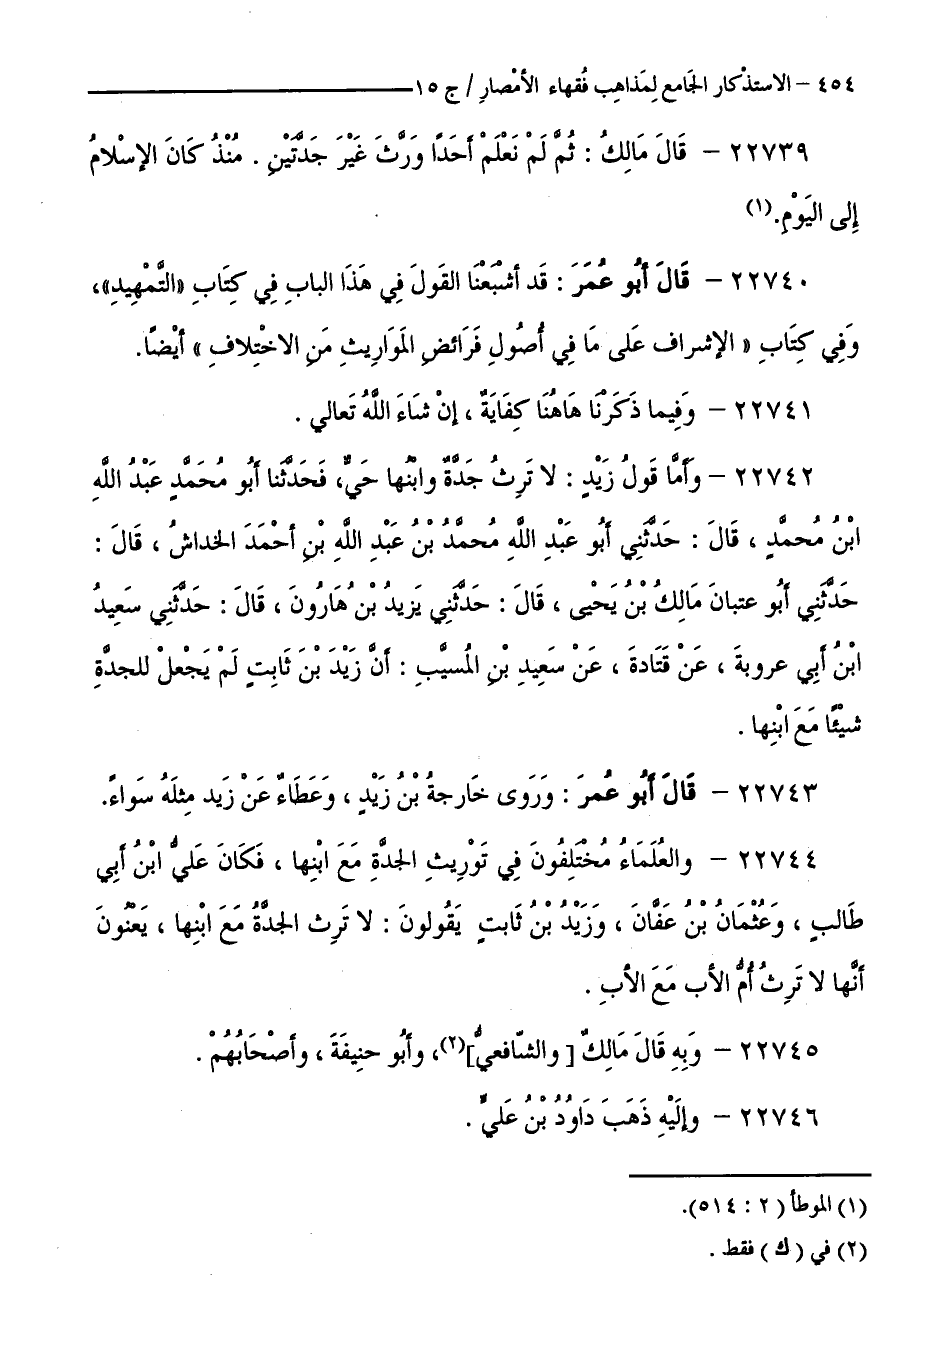 ٤٥٤ – الاستذْكار الجَامع لِمَذاهِب فُقهاء الأمْصارِ / ج ١٥
٢٢٧٣٩ – قَالَ مَالِكُ : ثُمَّ لَمْ نَعْلَمْ أحَدًا وَرَّثَ غَيْرَ جَدَّتَيْنِ . مُنْذُ كَانَ الإسْلامُ
إلى اليَوْمِ.(١)
٢٢٧٤٠ – قَالَ أبُو عُمَرَ : قَد أشْبَعْنَا القَولَ فِي هَذَا البابِ فِي كِتَابِ «التَّمْهِيدِ»،
وَفِي كِتَابِ « الإشراف عَلى مَا فِي أُصُولِ فَرَائضِ المَوَاريثِ مَنِ الاخْتِلافِ » أيْضًا.
٢٢٧٤١ – وَفِيما ذَكَرْنَا هَاهُنَا كِفَايَةٌ ، إنْ شَاءَ اللَّهُ تَعالي .
٢٢٧٤٢ – وَأمَّا قَولُ زَيْدٍ : لا تَرِثُ جَدَّةٌ وابْنُها حَيٌّ، فَحَدَّثنا أبُو مُحَمَّدٍ عَبْدُ اللَّهِ
ابْنُ مُحمَّدٍ ، قَالَ : حَدَّثَنِي أبُو عَبْدِ اللَّهِ مُحمَّدُ بْنُ عَبْدِ اللَّهِ بْنِ أحْمَدَ الخداشُ ، قَالَ :
حَدَّثَنِي أبُو عتبانَ مَالِكُ بْنُ يَحْيى ، قَالَ : حَدَّثَنِي يَزِيدُ بْنُ هَارُونَ ، قَالَ : حَدَّثَنِي سَعِيدُ
ابْنُ أبِي عروبةَ ، عَنْ قَتَادةَ ، عَنْ سَعِيدِ بْنِ المُسيَّبِ : أنَّ زَيْدَ بْنَ ثَابِتٍ لَمْ يَجْعلْ للجدَّةِ
شَيْئًا مَعَ ابْنِها .
٢٢٧٤٣ – قَالَ أبُو عُمرَ : وَرَوى خَارِجةُ بْنُ زَيْدٍ ، وَعَطَاءٌ عَنْ زَيد مِثلَهُ سَواءً.
٢٢٧٤٤ – والعُلَمَاءُ مُخْتَلِفُونَ فِي تَوْرِيثِ الجدَّةِ مَعَ ابْنِها ، فَكَانَ عَليُّ ابْنُ أبِي
طَالبٍ ، وَعُثْمَانُ بْنُ عَفَّانَ ، وَزَيْدُ بْنُ ثَابتٍ يَقُولونَ : لا تَرِث الجدَّةُ مَعَ ابْنِها ، يَعْنُونَ
أنَّها لا تَرِثُ أُمُّ الأبِ مَعَ الأبِ .
٢٢٧٤٥ – وَبِهِ قَالَ مَالِكٌ [ والشَّافعيُّ](٢)، وأبُو حنِيفَةَ ، وأصْحَابُهُمْ .
٢٢٧٤٦ – وإلَيْهِ ذَهَبَ دَاوُدُ بْنُ عَليٍّ .
(١) الموطأ ( ٢ : ٥١٤).
(٢) في ( ك ) فقط .